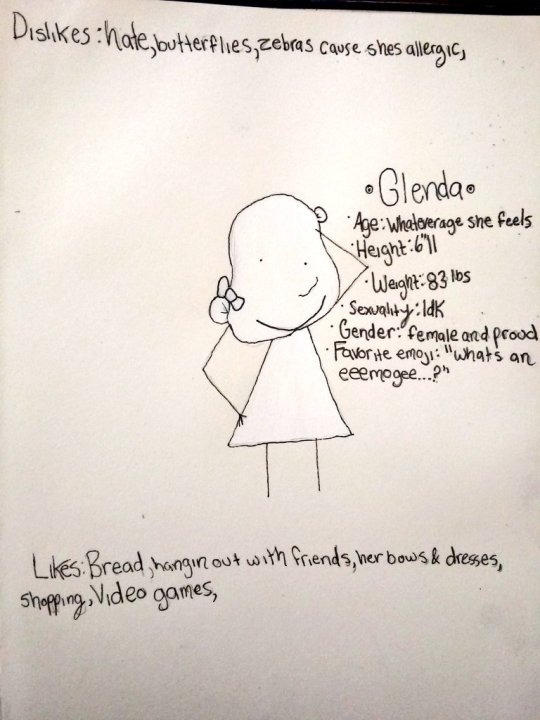 Dislikes: hate, butterflies, zebras cause shes allergic,
• Glenda •
· Age: Whateverage she feels
· Height: 6"11
· Weight: 83 lbs
· Sexuality: Idk
· Gender: female and proud
· Favorite emoji: "whats an
eeemogee...?"
Likes: Bread, hangin out with friends, her bows & dresses,
shopping, Video games,